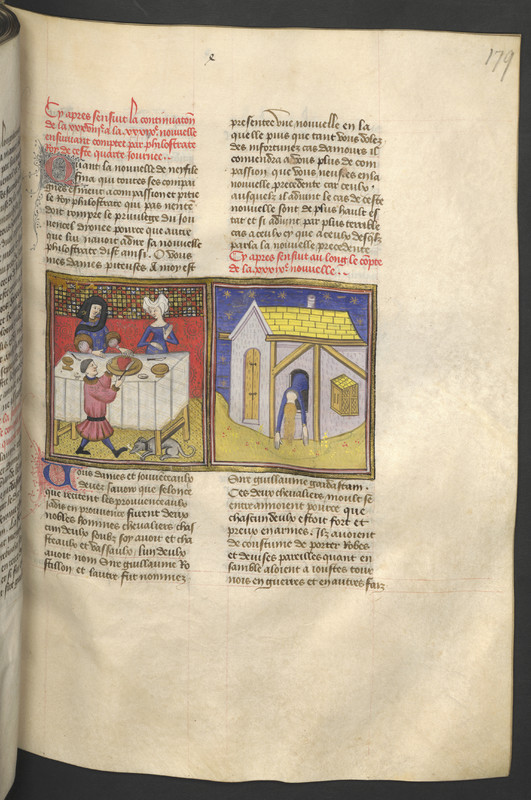 179
Cy apres sensuit la continuation
de la
nouvelle
ensuivant comptee par philostrate
Roy de ceste quarte journee
Oiant la nouvelle de neifile
fina qui toutes ses compai
gnes esmeut a compassion et pitie
le Roy philostrate qui pas nence
doit rompre le privilege du
que lui navoit adne sa nouvelle
philostrate dist ainsi. O vous
mes dames piteuses a moy est
presente une nouvelle en la
quelle puis que tant vous dolez
des infortunez cas damours il
conviendra a vous plus de com
passion que vous neustes en la
nouvelle precedente car ceulx
ausquelz il advint le cas de ceste
nouvelle sont de plus hault es
tat et si advint par plus terrible
cas a ceulx cy que a ceulx desqlz
parla la nouvelle precedente
Cy apres sensuit au long le compte
de la
nouvelle
Vous dames et jouvenceaulx
devez savoir que selonce
que recitent les prouvenceaulx
jadis en prouvence furent deux
nobles hommes chevaliers chas
cun deulx soubz soy avoit et cha
steaulx et vassaulx lun deulx
avoit nom Sire guillaume Ro
sillon et lautre fut nommez
Sire guillaume gardastain.
Ces deux chevaliers moult se
entre amoient pource que
chascun deulx estoit fort et
preux en armes. Ilz avoient
de coustume de porter robes
et devises pareilles quant en
samble aloient a joustes tour
nois en guerres et en autres faiz